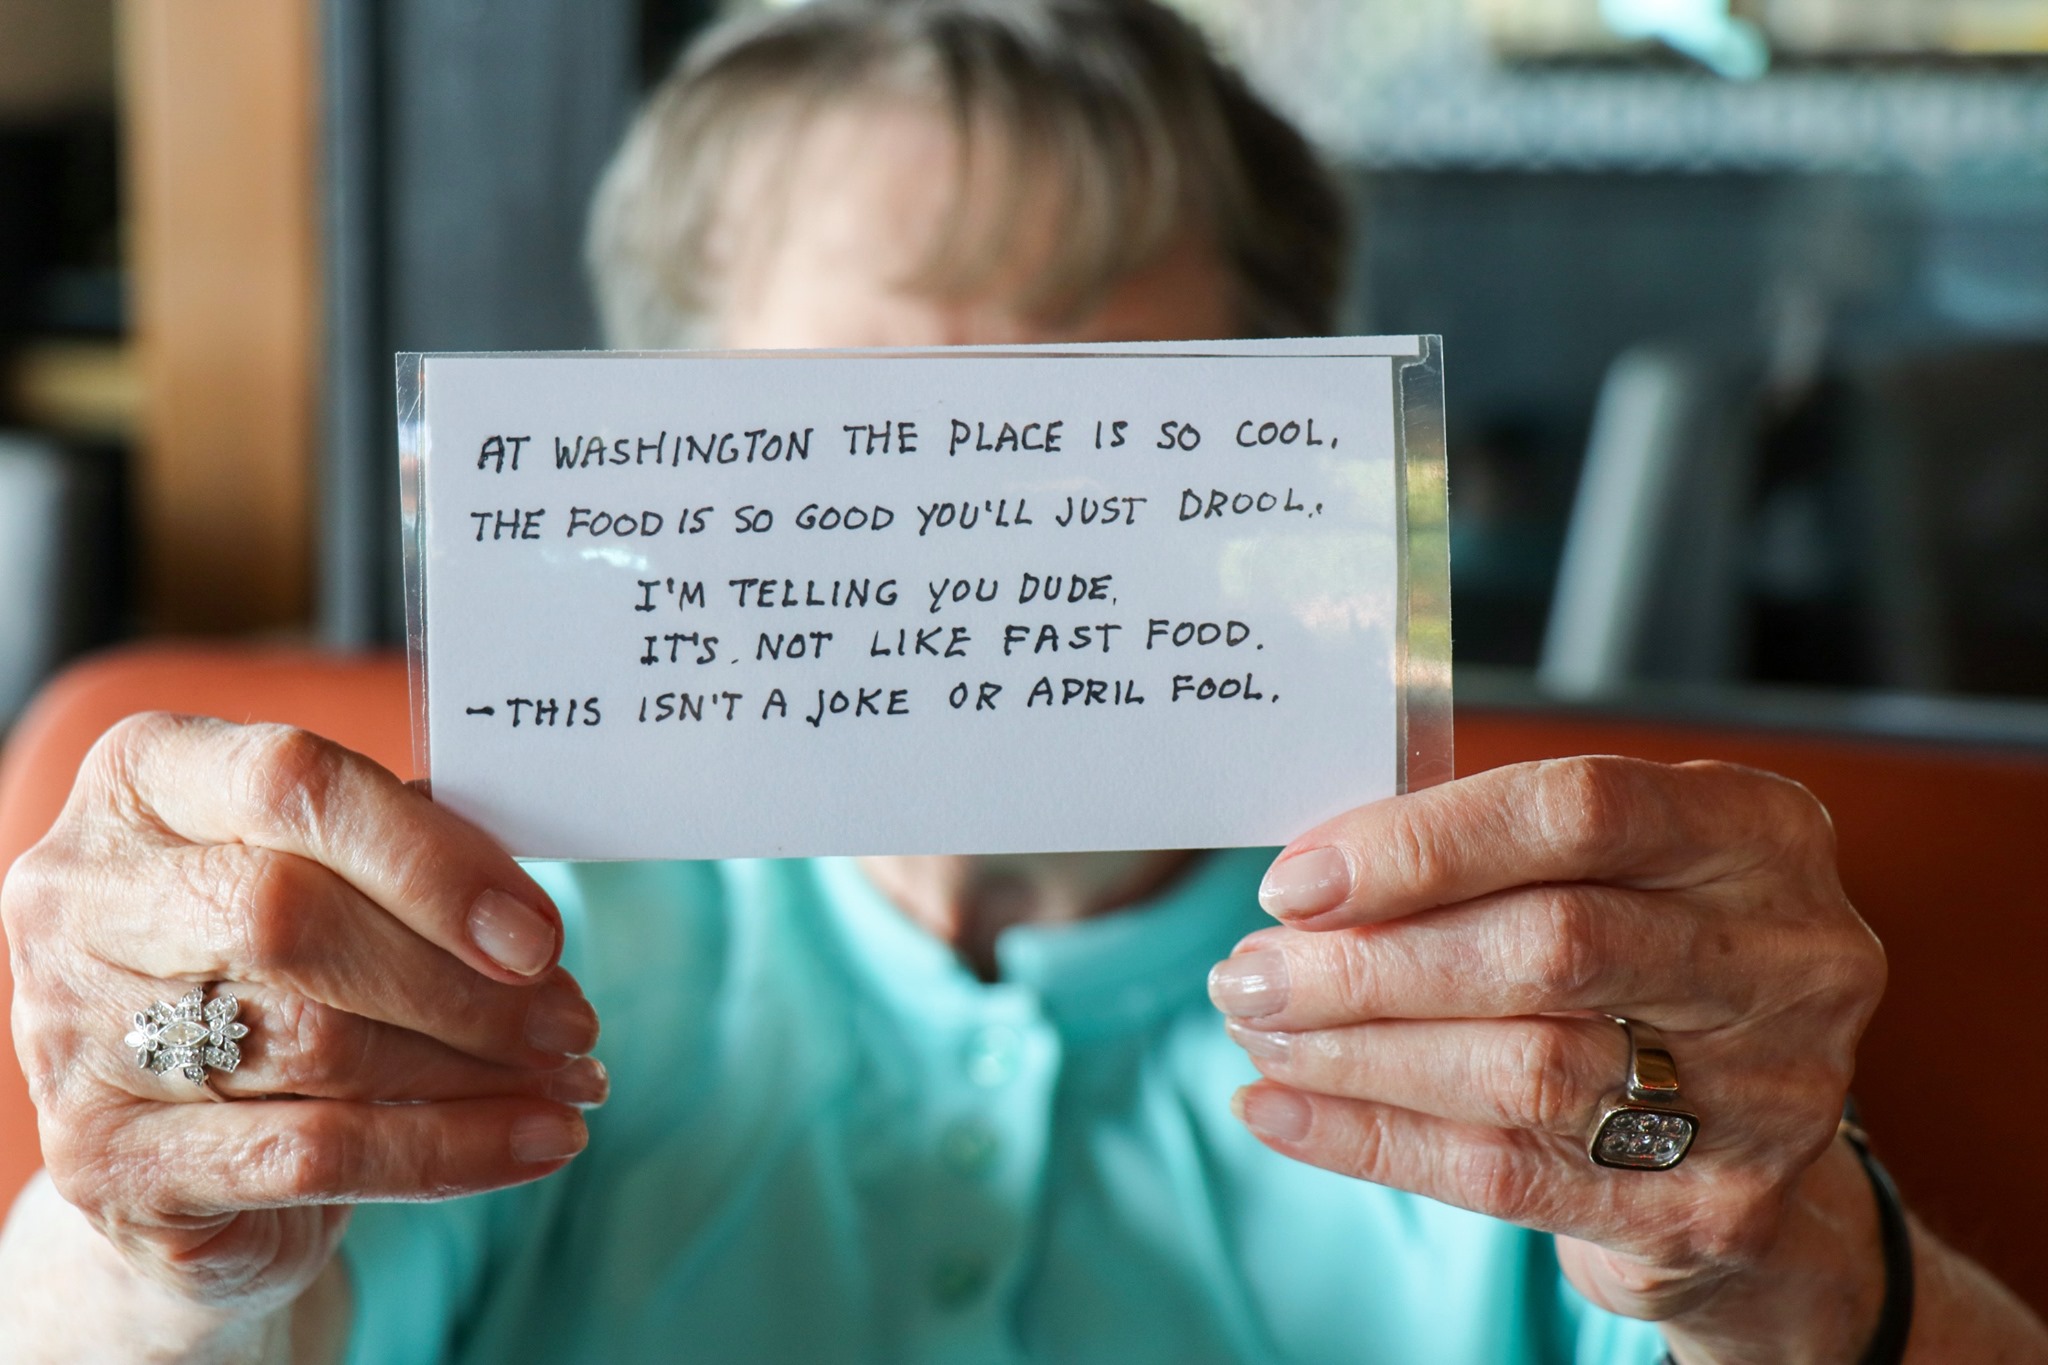 AT WASHINGTON THE PLACE IS SO COOL.
THE FOOD IS SO GOOD YOU'LL JUST DROOL..
I'M TELLING YOU DUDE.
IT'S. NOT LIKE FAST FOOD.
- THIS ISN'T A JOKE OR APRIL FOOL.